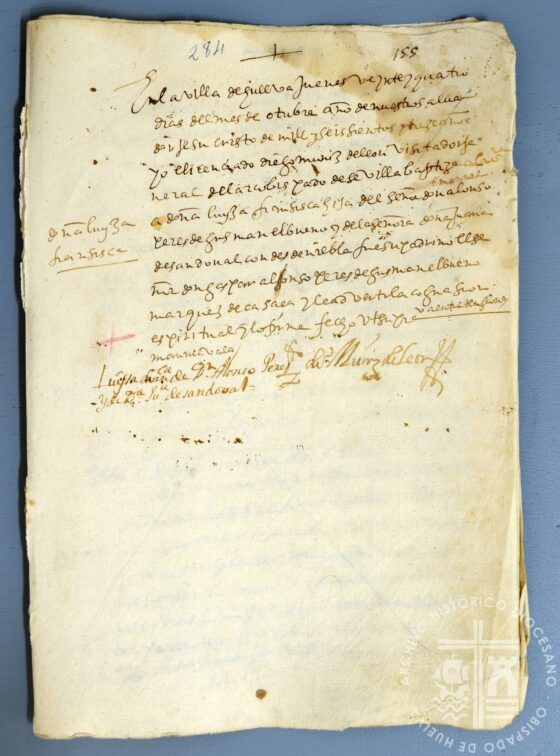 284
155
En la villa de guelva Jueves veynte y quatro
dias del mes de otubre año de nuestro salva
dor jesu cristo de mill y seissientos y treze años
yo el licenciado diego muñiz de leon visitador ge
neral del arzobispado de sevilla baptize
manuel
a doña luyza fransisca hija del señor don alonso
peres de gusman el bueno y de la señora doña juana
de sandoval condes de niebla fue su padrino el se
ñor don gaspar alfonso peres de gusman el bueno
marques de casasa y le advertí la cognasion
espiritual y lo firme fecho ut supra
manuel vala
doña luyza
fransisca
Luysa franca de Dn Alonso Perez
y de Da Jua de sandoval
do Muñiz de leon
ARCHIVO HISTÓRICO DIOCESANO · OBISPADO DE HUELVA